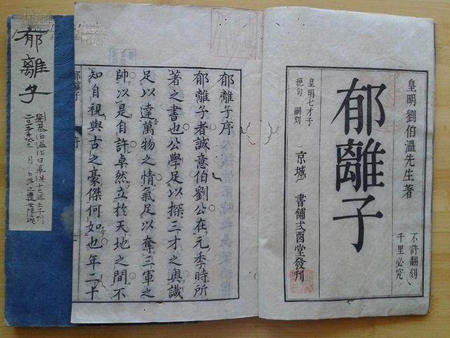 皇明劉伯溫先生著
不許翻刻
千里必究
郁離子
皇明七才子
絕句 嗣刻
京城 書鋪弍酉堂發刋
郁離子序
郁離子者誠意伯劉公在元季時所
著之書也公學足以探三才之奧識
足以達萬物之情氣足以奪三軍之
帥以是自許卓然立於天地之間不
知自視與古之豪傑何如也年二十
郁離子
郁離子